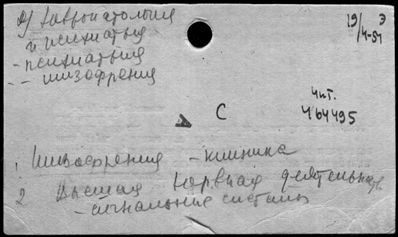 19/4-51 Э
и психиатрия
- психиатрия
-- шизофрения
чит.
464495
С
1. Шизофрения - клиника
2. Высшая нервная деятельность
- сигнальные системы